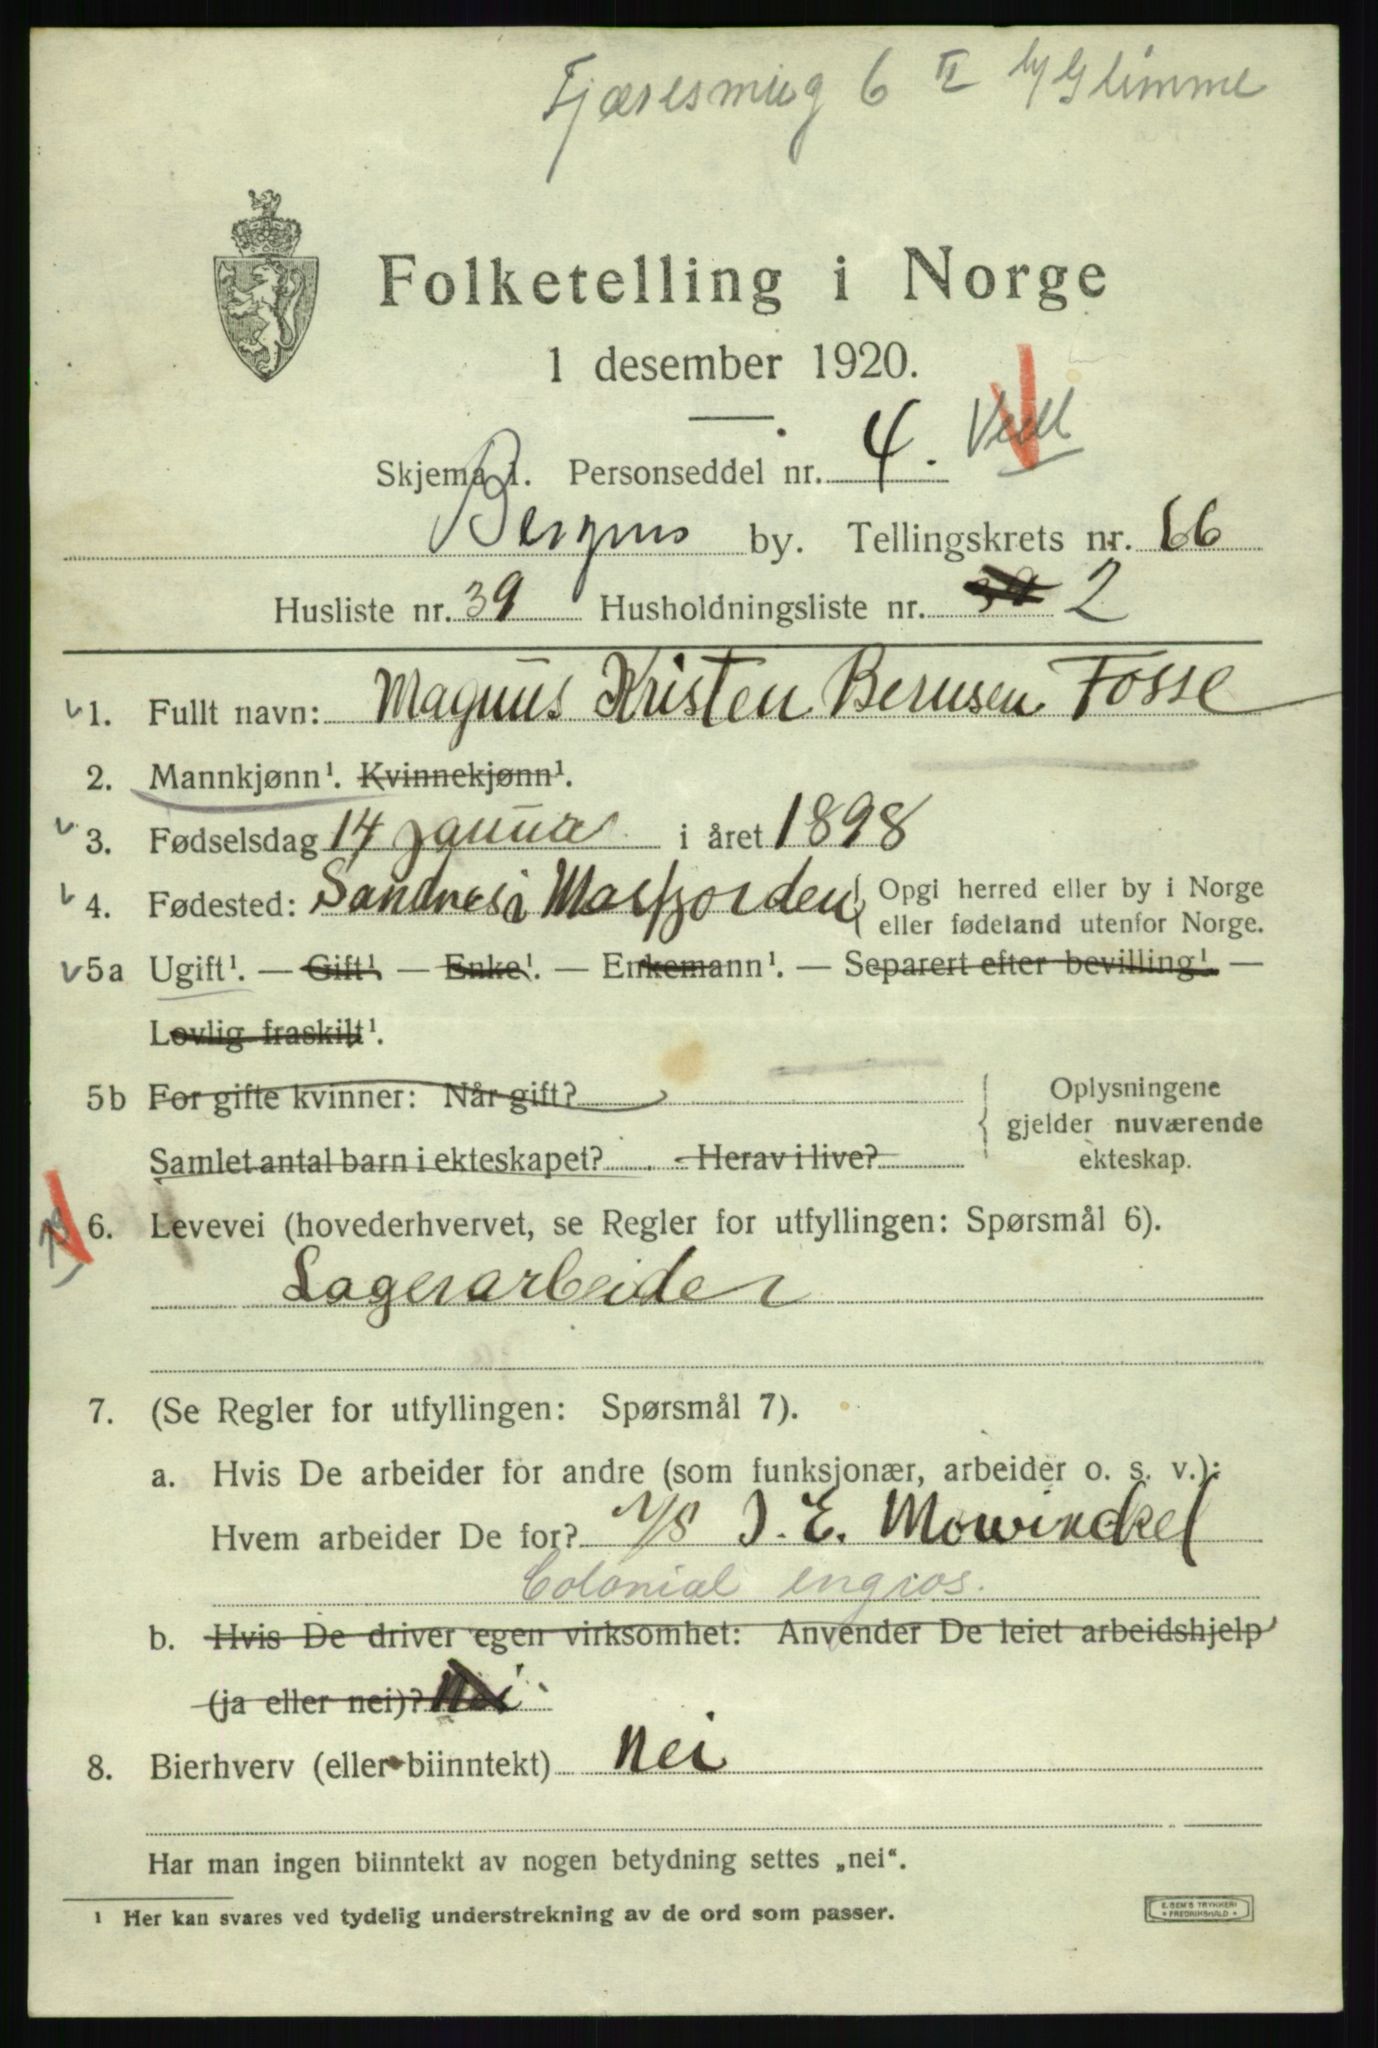 Fjæresmug 6 II h/ Glimme
Folketelling i Norge
1 desember 1920.
Skjema 1. Personseddel nr. 4.
Bergens by. Tellingskrets nr. 66
Husliste nr. 39 Husholdningsliste nr. 39 2
1. Fullt navn: Magnus Kristen Bernsen Fosse
2. Mannkjønn¹. Kvinnekjønn¹.
3. Fødselsdag 14 januar i året 1898
4. Fødested: Sandnes i Masfjorden { Opgi herred eller by i Norge
eller fødeland utenfor Norge.
5a Ugift¹. — Gift¹. — Enke¹. — Enkemann¹. — Separert efter bevilling¹. —
Lovlig fraskilt¹.
5b For gifte kvinner: Når gift? { Oplysningene
gjelder nuværende
Samlet antal barn i ekteskapet? Herav i live? ekteskap.
6. Levevei (hovederhvervet, se Regler for utfyllingen: Spørsmål 6).
Lagerarbeider
7. (Se Regler for utfyllingen: Spørsmål 7).
a. Hvis De arbeider for andre (som funksjonær, arbeider o. s. v.):
Hvem arbeider De for? A/S J. E. Mowinckel
Colonial engros.
b. Hvis De driver egen virksomhet: Anvender De leiet arbeidshjelp
(ja eller nei)? Nei
8. Bierhverv (eller biinntekt) Nei
Har man ingen biinntekt av nogen betydning settes „nei“.
¹ Her kan svares ved tydelig understrekning av de ord som passer.
E. SEM'S TRYKKERI
* FREDRIKSHALD *